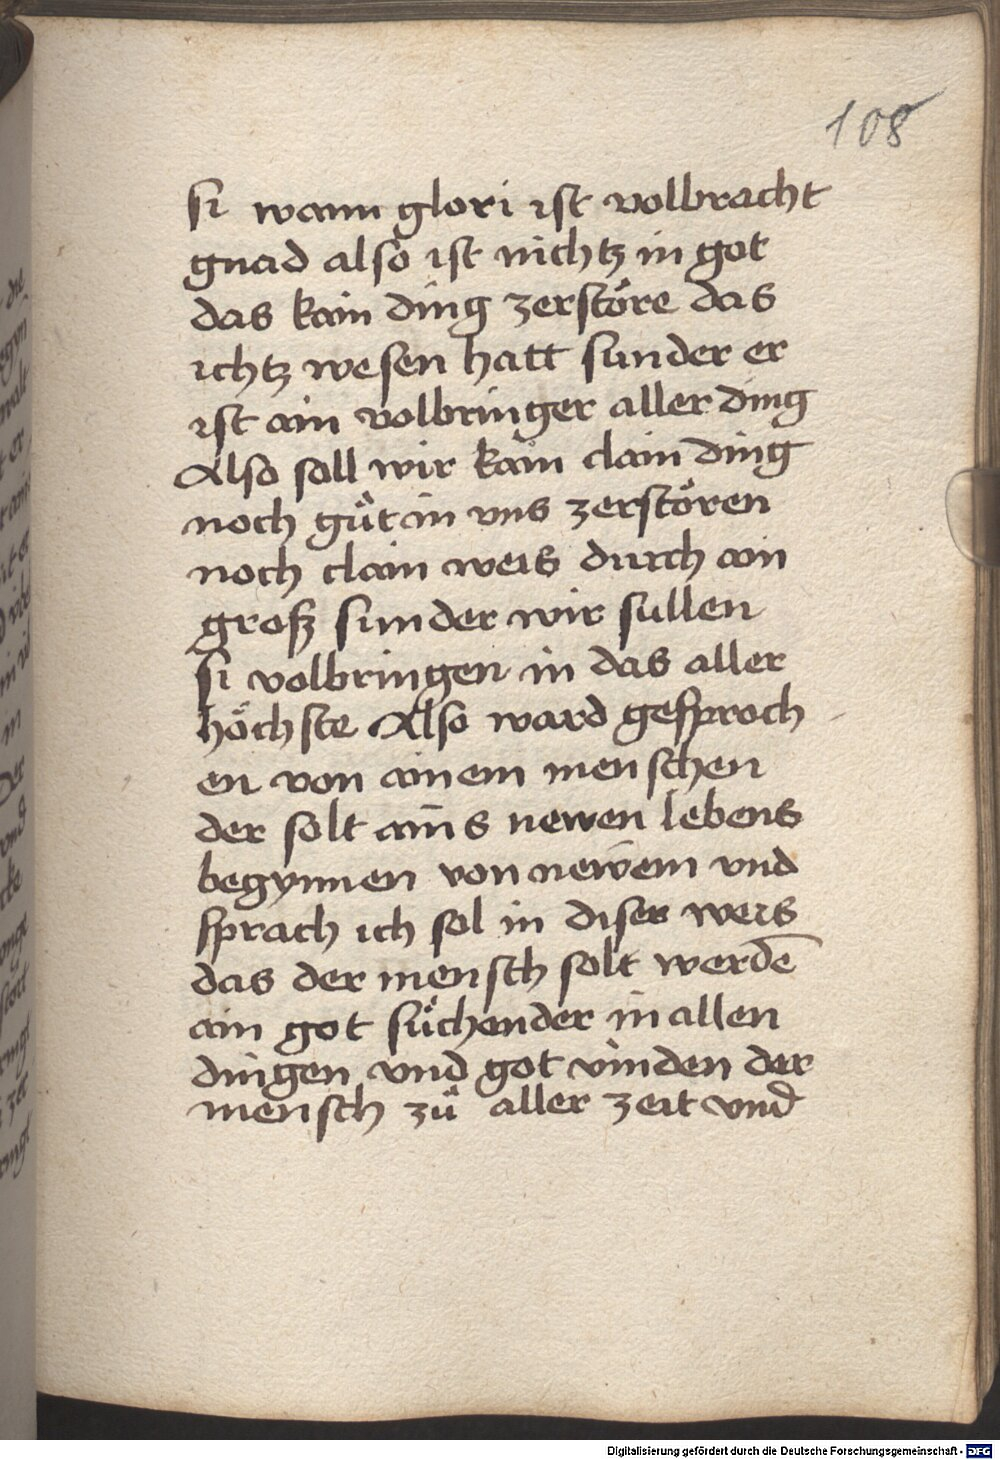 108
si wann glori ist volbracht
gnad also ist nichtz in got
das kain ding zerstöre das
ichtz wesen hatt sunder er
ist ain volbringer aller ding
Also soll wir kain clain ding
noch gůt in vns zerstören
noch clain weis durch ain
groß sunder wir sullen
si volbringen in das aller
höchste Also ward gesproch
en von ainem menschen
der solt ains newen lebens
begynnen von newem vnd
sprach ich sol in diser weis
das der mensch solt werdē
ain got sůchender in allen
dingen vnd got vinden der
mensch zů aller zeit vnd
Digitalisierung gefördert durch die Deutsche Forschungsgemeinschaft - DFG